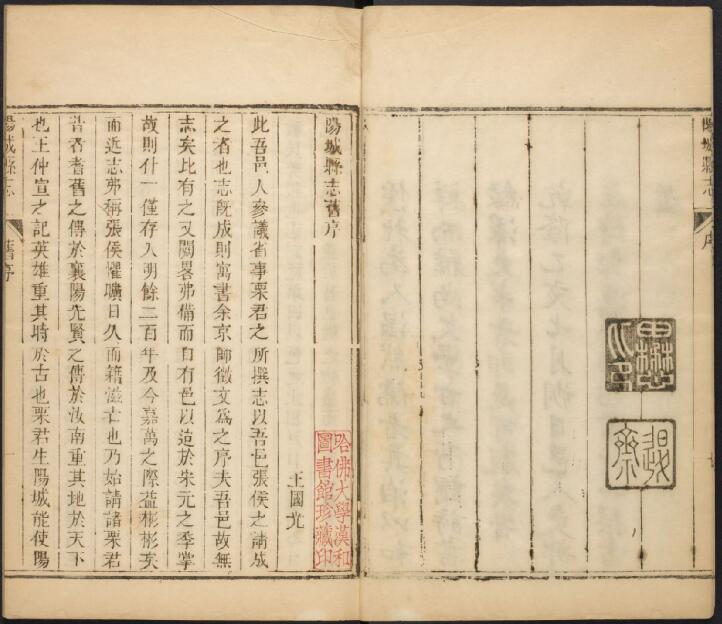 陽城縣志
序
陽城縣志舊序
王國光
哈佛大學漢和
圖書館珍藏印
此吾邑人參議省事栗君之所撰志以吾邑張侯之請成
之者也志既成則寓書余京師徵文爲之序夫吾邑故無
志矣比有之又闕畧弗備而自有邑以迄於宋元之季掌
故則什一僅存入明餘二百年及今嘉萬之際益彬彬矣
而近志弗稱張侯懼曠日久而籍滋亡也乃始請諸栗君
昔者耆舊之傳於襄陽先賢之傳於汝南重其地於天下
也王仲宣之記英雄重其時於古也栗君生陽城能使陽
陽城縣志
舊序